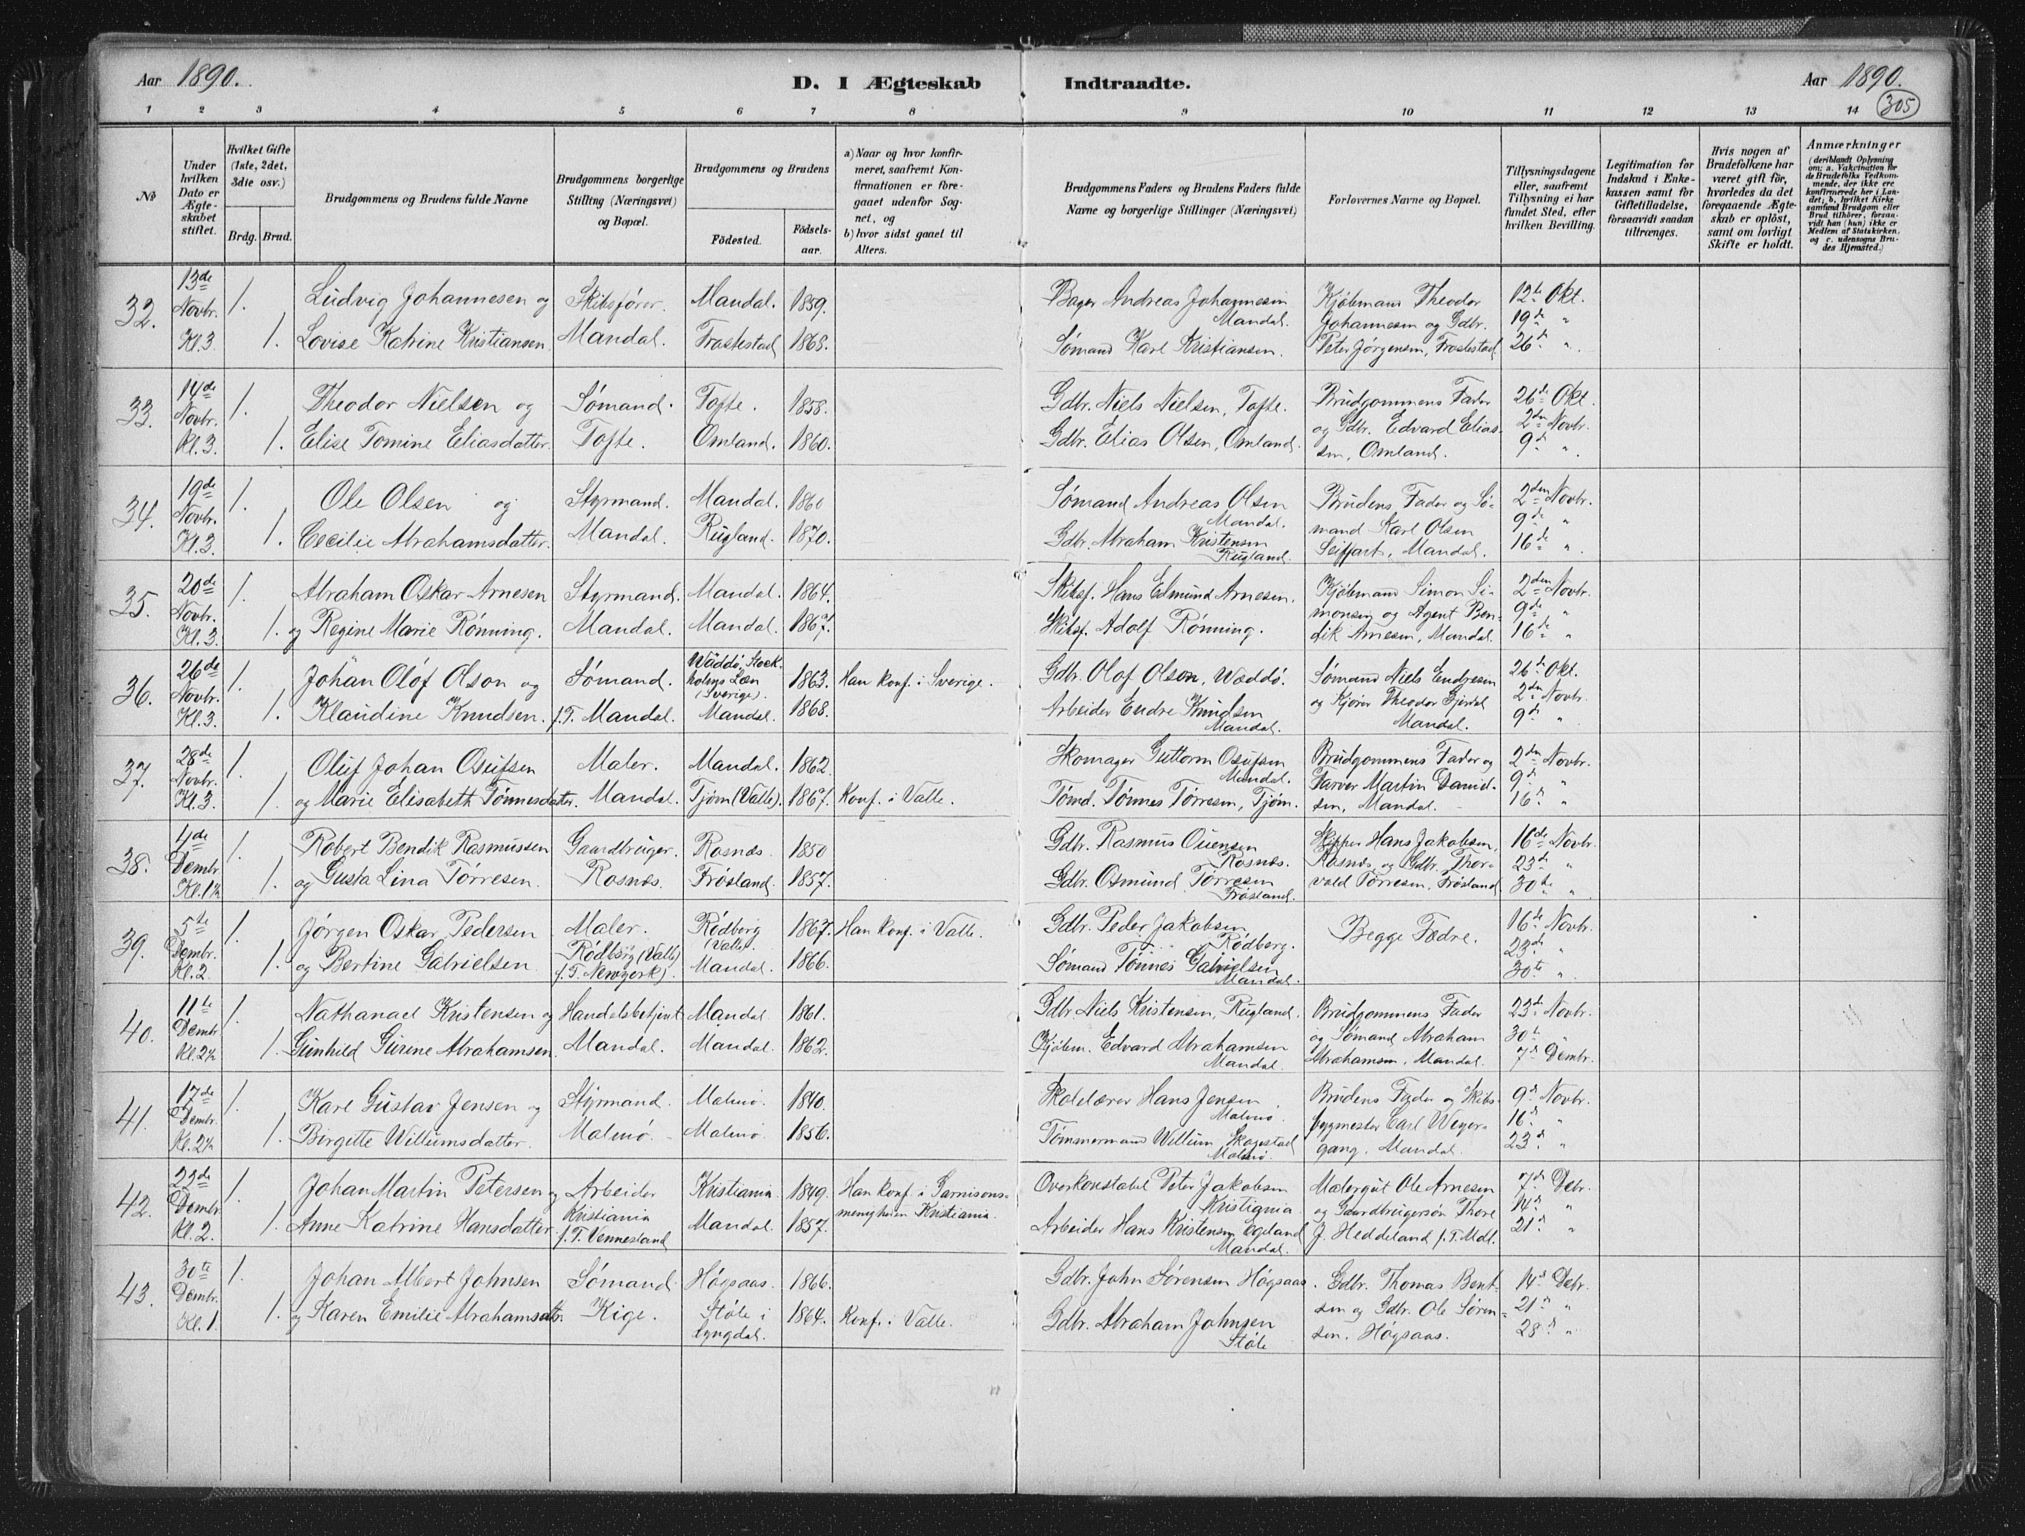 Aar 1890. D. I Ægteskab Indtraadte. Aar 1890.
305
1 2 3 4 5 6 7 8 9 10 11 12 13 14
No
Under hvilken Dato er Ægteskabet stiftet.
Hvilket Gifte (1ste, 2det, 3die osv.)
Brdg. Brud.
Brudgommens og Brudens fulde Navne
Brudgommens borgerlige Stilling (Næringsvei) og Bopæl.
Brudgommens og Brudens
Födested. Födselsaar.
a) Naar og hvor konfirmeret, saafremt Konfirmationen er foregaaet udenfor Sognet, og
b) hvor sidst gaaet til Alters.
Brudgommens Faders og Brudens Faders fulde Navne og borgerlige Stillinger (Næringsvei)
Forlovernes Navne og Bopæl.
Tillysningsdagene eller, saafremt Tillysning ei har fundet Sted, efter hvilken Bevilling.
Legitimation for Indskud i Enkekassen samt for Giftetilladelse, forsaavidt saadan tiltrænges.
Hvis nogen af Brudefolkene har været gift för, hvorledes da det foregaaende Ægteskab er oplöst, samt om lovligt Skifte er holdt.
Anmærkninger
(deriblandt Oplysning om: a. Vakcination for de Brudefolks Vedkommende, der ikke ere konfirmerede her i Landet; b. hvilket Kirkesamfund Brudgom eller Brud tilhörer, forsaavidt han (hun) ikke er Medlem af Statskirken, og c. udensogns Brudes Hjemsted.)
32. 13de Novbr. Kl. 3 1. Ludvig Johannesen og Skibsfører Mandal. 1859. Bager Andreas Johannesen Mandal. Kjøbmann Theodor 12te Okt.
1. Lovise Katrine Kristiansen Mandal. Frostestad 1868. Sømand Karl Kristiansen. Johannesen og Gdbr. Peter Jørgensen, Frostestad 19de " 26de "
33. 14de Novbr. Kl. 3. 1. Theodor Nielsen og Sømand. Tofte. 1858. Gdbr. Niels Nielsen, Tofte. Brudgommens Fader 26de Okt.
1. Elise Tomine Eliasdatter. Tofte. Omland. 1860. Gdbr. Elias Olsen, Omland. og Gdbr. Edvard Eliassen, Omland. 2den Novbr. 9de "
34. 19de Novbr. Kl. 3 1. Ole Olsen og Styrmand. Mandal. 1860 Sømand Andreas Olsen Mandal. Brudens Fader og Sø- 2den Novbr.
1. Cecilie Abrahamsdatter. Mandal. Rugland. 1870. Gdbr. Abraham Kristensen Rugland. mand Karl Olsen Seiffart, Mandal. 9de " 16de "
35. 20de Novbr. Kl. 3 1. Abraham Oskar Arnesen Styrmand. Mandal. 1864. Skibsf. Hans Edmund Arnesen. Kjøbmand Simon Si- 2den Novbr.
1. og Regine Marie Rønning. Mandal. Mandal. 1867. Skibsf. Adolf Rønning. monsen og Agent Bendik Arnesen, Mandal. 9de " 16de "
36. 26de Novbr. Kl. 3 1. Johan Olof Olson og Sømand. Wäddö, Stockholms Læn (Sverige) 1863. Han konf. i Sverige. Gdbr. Olof Olson, Wæddø. Sømand Niels Endresen 26de Okt.
1. Klaudine Knudsen. f.T. Mandal. Mandal. 1868. Arbeider Endre Knudsen Mandal. og Kjører Theodor Gjertsen Mandal. 2den Novbr. 9de "
37. 28de Novbr. Kl. 3 1. Oluf Johan Osufsen Maler. Mandal. 1862. Skomager Guttorm Osufsen Mandal. Brudgommens Fader og 2den Novbr.
1. og Marie Elisabeth Tønnesdatter. Mandal. Tjøm (Valle). 1867. Konf. i Valle. Tømd. Tønnes Tørresen, Tjøm. Farver Martin Danielsen, Mandal. 9de " 16de "
38. 4de Dembr. Kl. 1½ 1. Robert Bendik Rasmussen Gaardbruger. Rosnæs. 1850 Gdbr. Rasmus Ouensen Rosnæs. Skipper Hans Jakobsen, 16de Novbr.
1. og Gusta Lina Tørresen. Rosnæs. Frøsland. 1857. Gdbr. Osmund Tørresen Frøsland. Rosnæs og Gdbr. Thorvald Tørresen, Frøsland 23de " 30te "
39. 5te Dembr. Kl. 2. 1. Jørgen Oskar Pedersen Maler. Rødberg (Valle) 1867. Han konf. i Valle. Gdbr. Peder Jakobsen Rødberg. Begge Fædre. 16de Novbr.
1. og Bertine Gabrielsen Rødberg (Valle) f.T. Newyork). Mandal. 1866. Sømand Tønnes Gabrielsen Mandal. 23de " 30te "
40. 11te Dembr. Kl. 2½ 1. Nathanael Kristensen og Handelsbetjent Mandal 1861. Gdbr Niels Kristensen, Rugland. Brudgommens Fader 23de Novbr.
1. Gunhild Gurine Abrahamsen Mandal. Mandal. 1862. Kjøbm. Edvard Abrahamsen Mandal. og Sømand Abraham Abrahamsen, Mandal. 30te " 7de Dembr.
41. 17de Dembr. Kl. 2½ 1. Karl Gustav Jensen og Styrmand. Malmø. 1840. Skolelærer Hans Jensen Malmø. Brudens Fader og Skibs- 9de Novbr.
1. Birgitte Willumsdatter. Malmø. Malmø. 1856. Tømmermand Willum Skagestad Malmø. bygmester Carl Weyergang, Mandal. 16de " 23de "
42. 22de Dembr. Kl. 2. 1. Johan Martin Petersen og Arbeider Kristiania. 1849. Han konf. i Garnisons- Overkonstabel Peter Jakobsen Kristiania Malergut Ole Arnesen 7de Debr.
1. Anne Katrine Hansdatter. Kristiania f.T. Vennesland Mandal. 1857. menigheden Kristiania. Arbeider Hans Kristensen Egeland Mandal. og Gaardbrugersøn Thore J. Heddeland f.T. Mdl. 14de " 21de "
43. 30te Dembr. Kl. 1. 1. Johan Albert Johnsen Sømand. Høgsaas. 1866. Gdbr. John Sørensen Høgsaas. Gdbr. Thomas Bent- 14de Debr.
1. og Karen Emilie Abrahamsdtr. Kige. Støle i Lyngdal. 1864. Konf. i Valle. Gdbr. Abraham Johnsen Støle sen og Gdbr. Ole Sørensen, Høgsaas. 21de " 28de "